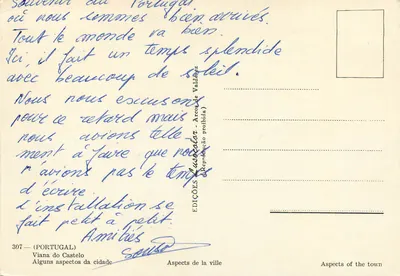 Souvenir du Portugal
où nous sommes bien arrivés.
Tout le monde va bien.
Ici, il fait un temps splendide
avec beaucoup de soleil.
Nous nous excusons
pour ce retard mais
nous avions telle
ment à faire que nous
n'avions pas le temps
d'écrire.
l'installation se
fait petit à petit.
Amitiés
EDIÇÕES
(Reprodução proibida)
307 — (PORTUGAL)
Viana do Castelo
Alguns aspectos da cidade
Aspects de la ville
Aspects of the town